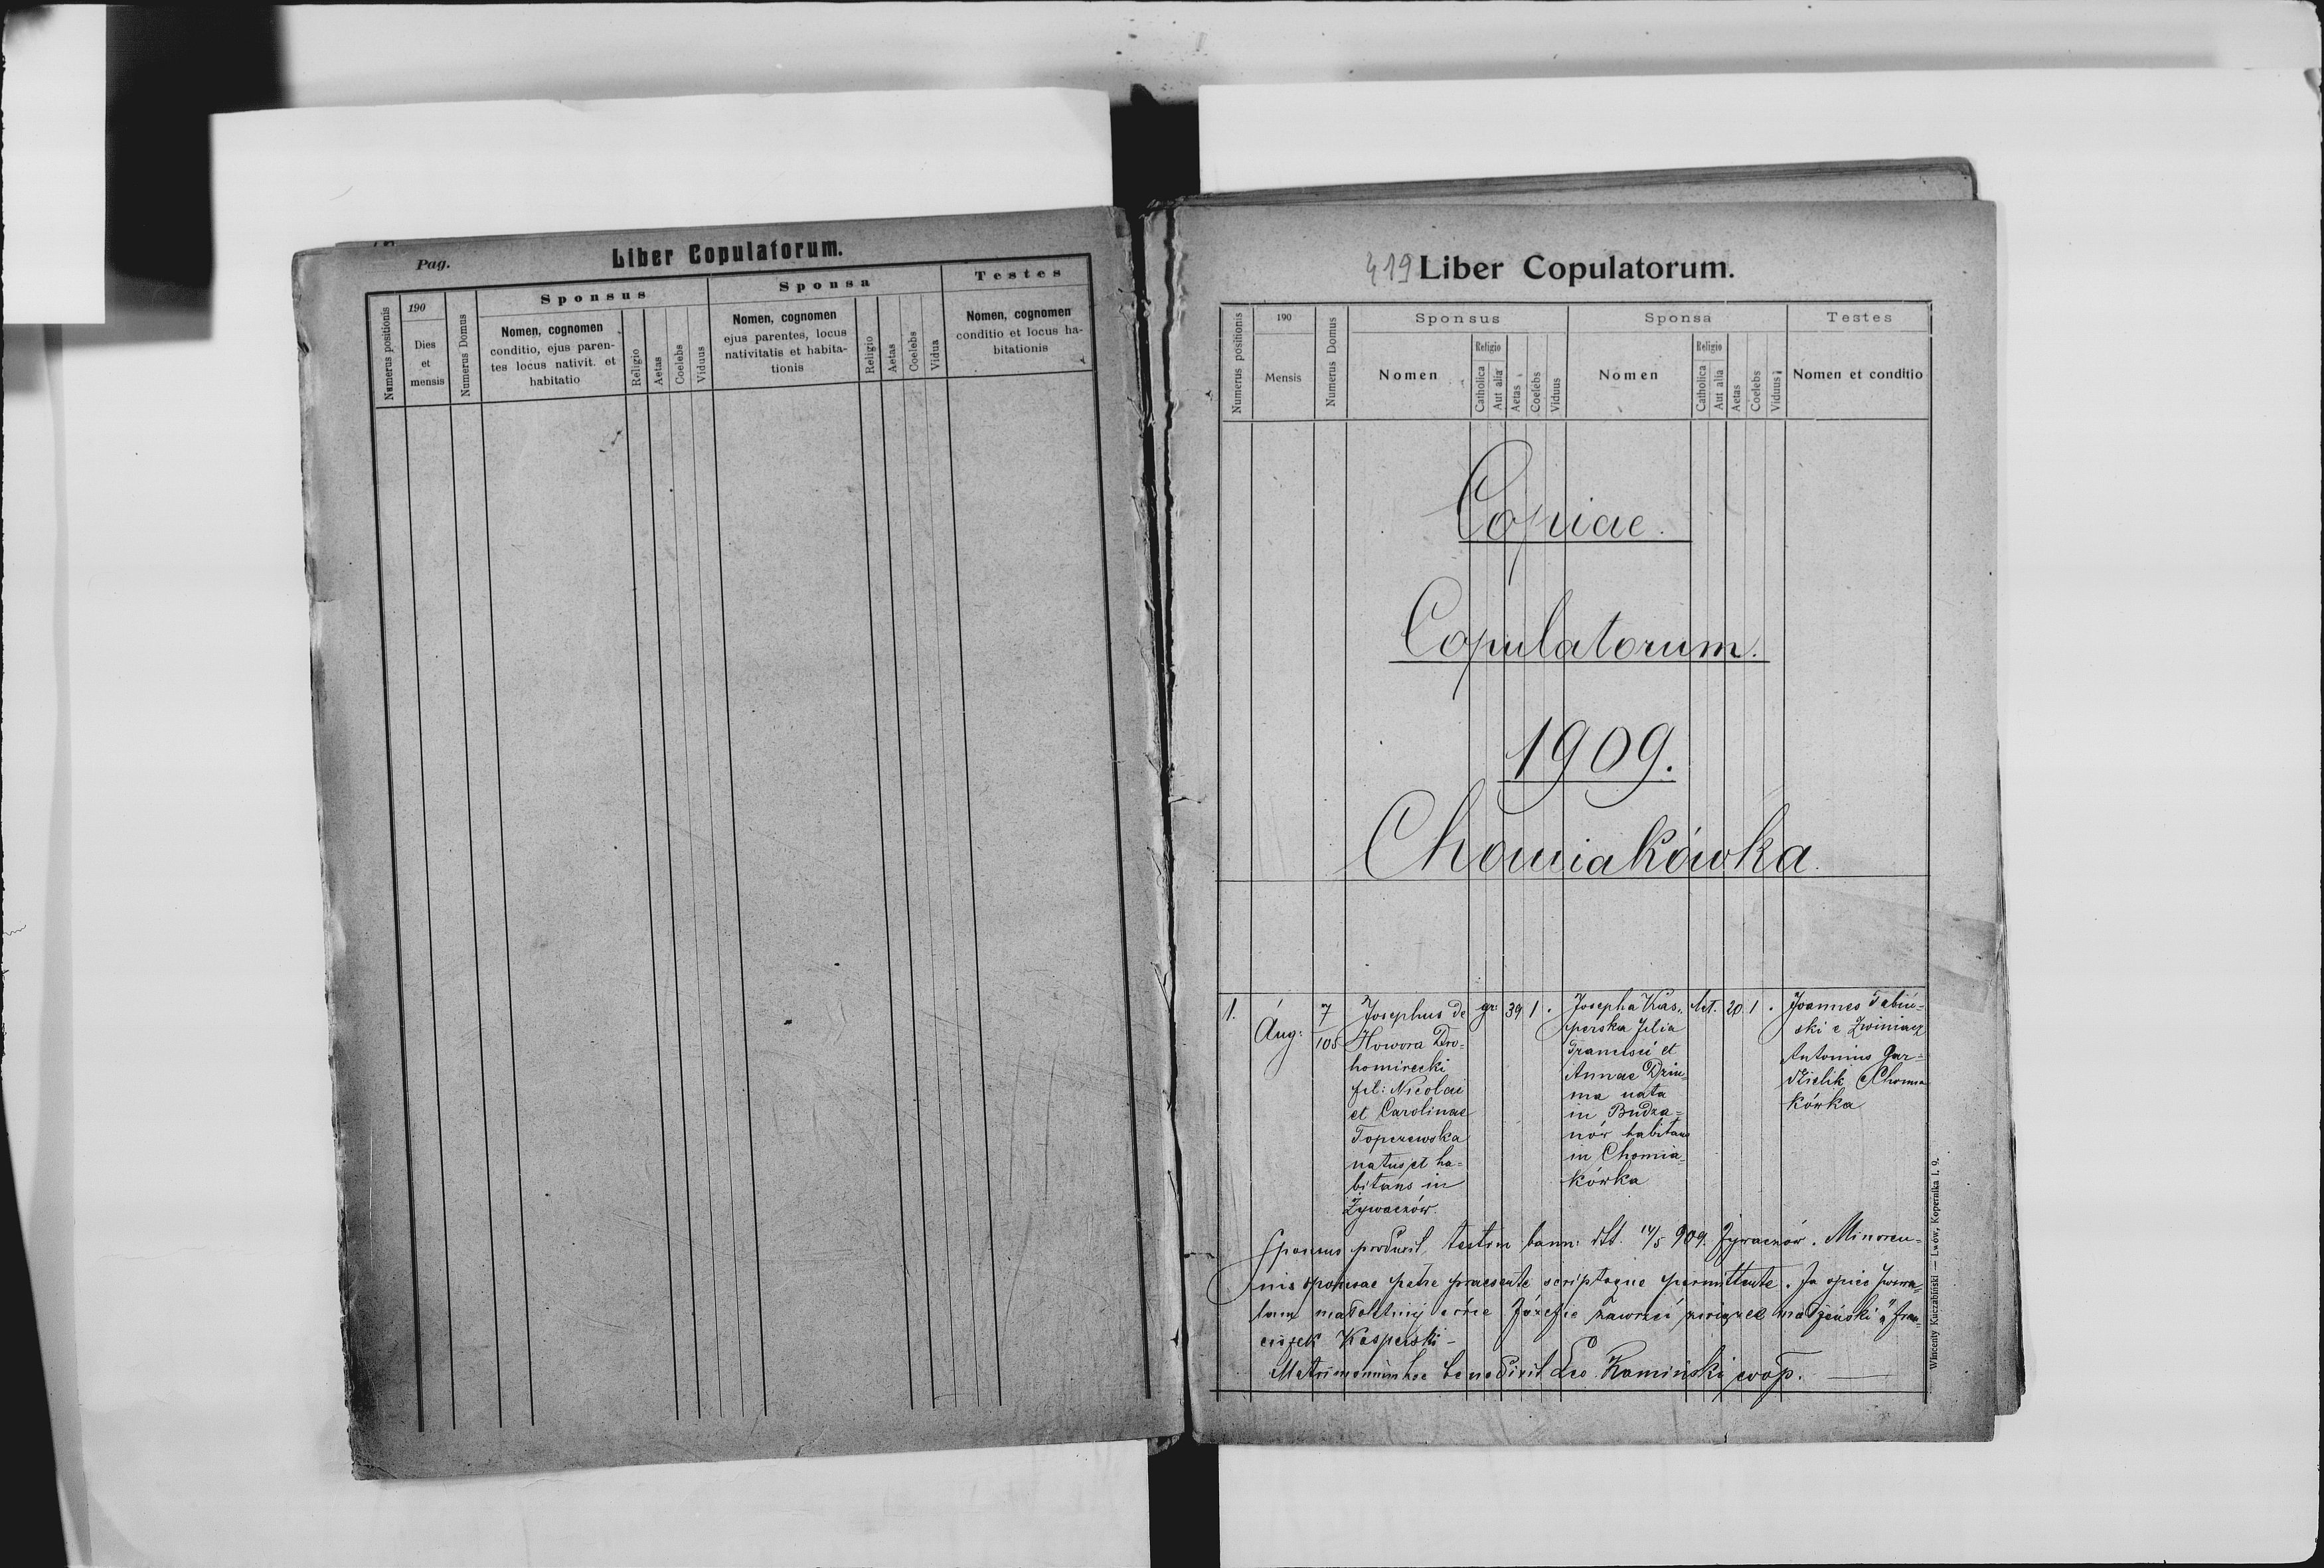 Pag.
Liber Copulatorum.
Numerus positionis
190
Dies
et
mensis
Numerus Domus
Sponsus
Nomen, cognomen
conditio, ejus paren-
tes locus nativit. et
habitatio
Religio
Aetas
Coelebs
Viduus
Sponsa
Nomen, cognomen
ejus parentes, locus
nativitatis et habita-
tionis
Religio
Aetas
Coelebs
Vidua
Testes
Nomen, cognomen
conditio et locus ha-
bitationis
419
Liber Copulatorum.
Numerus positionis
190
Mensis
Numerus Domus
Sponsus
Nomen
Religio
Catholica
Aut alia
Aetas
Coelebs
Viduus
Sponsa
Nomen
Religio
Catholica
Aut alia
Aetas
Coelebs
Viduus
Testes
Nomen et conditio
Copiae.
Copulatorum.
1909.
Chomiakówka.
1.
Aug:
7
105
Josephus de
Howora Dro-
homirecki
fil: Nicolai
et Carolinae
Toperzewska
natus et ha-
bitans in
Żywaczów.
gr.
39
1
.
Josepha Kas-
perska filia
Francisci et
Annae Dziu-
ma nata
in Budza-
nów habitans
in Chomia-
kówka
lat.
20
1
.
Joannes Tabiń-
ski e Zwiniacz
Antonius Gar-
dzielik e Chomia
kówka
Sponsus produxit testim bann: dtt. 14/5 909. Żywaczów. Minoren-
nis sponsae patre praesente scriptoque permittente. Ja ojciec pozwa-
lam małoletniej córce Józefie zawrzeć związek małżeński" Fran-
ciszek Kasperski -
Matrimonium hoc benedixit Leo Kamiński coop.
Wincenty Kuczabiński — Lwów, Kopernika l. 9.